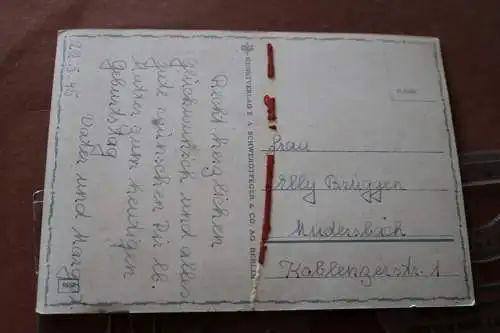 22.5.45
Recht herzlichen
Glückwunsch und alles
gute wünschen Dir lb.
Mutter zum heutigen
Geburtstag
Vater und Margret
KUNSTVERLAG E. A. SCHWERDTFEGER & CO. AG. BERLIN
Frau
Elly Brüggen
Mudersbach
Koblenzerstr. 1